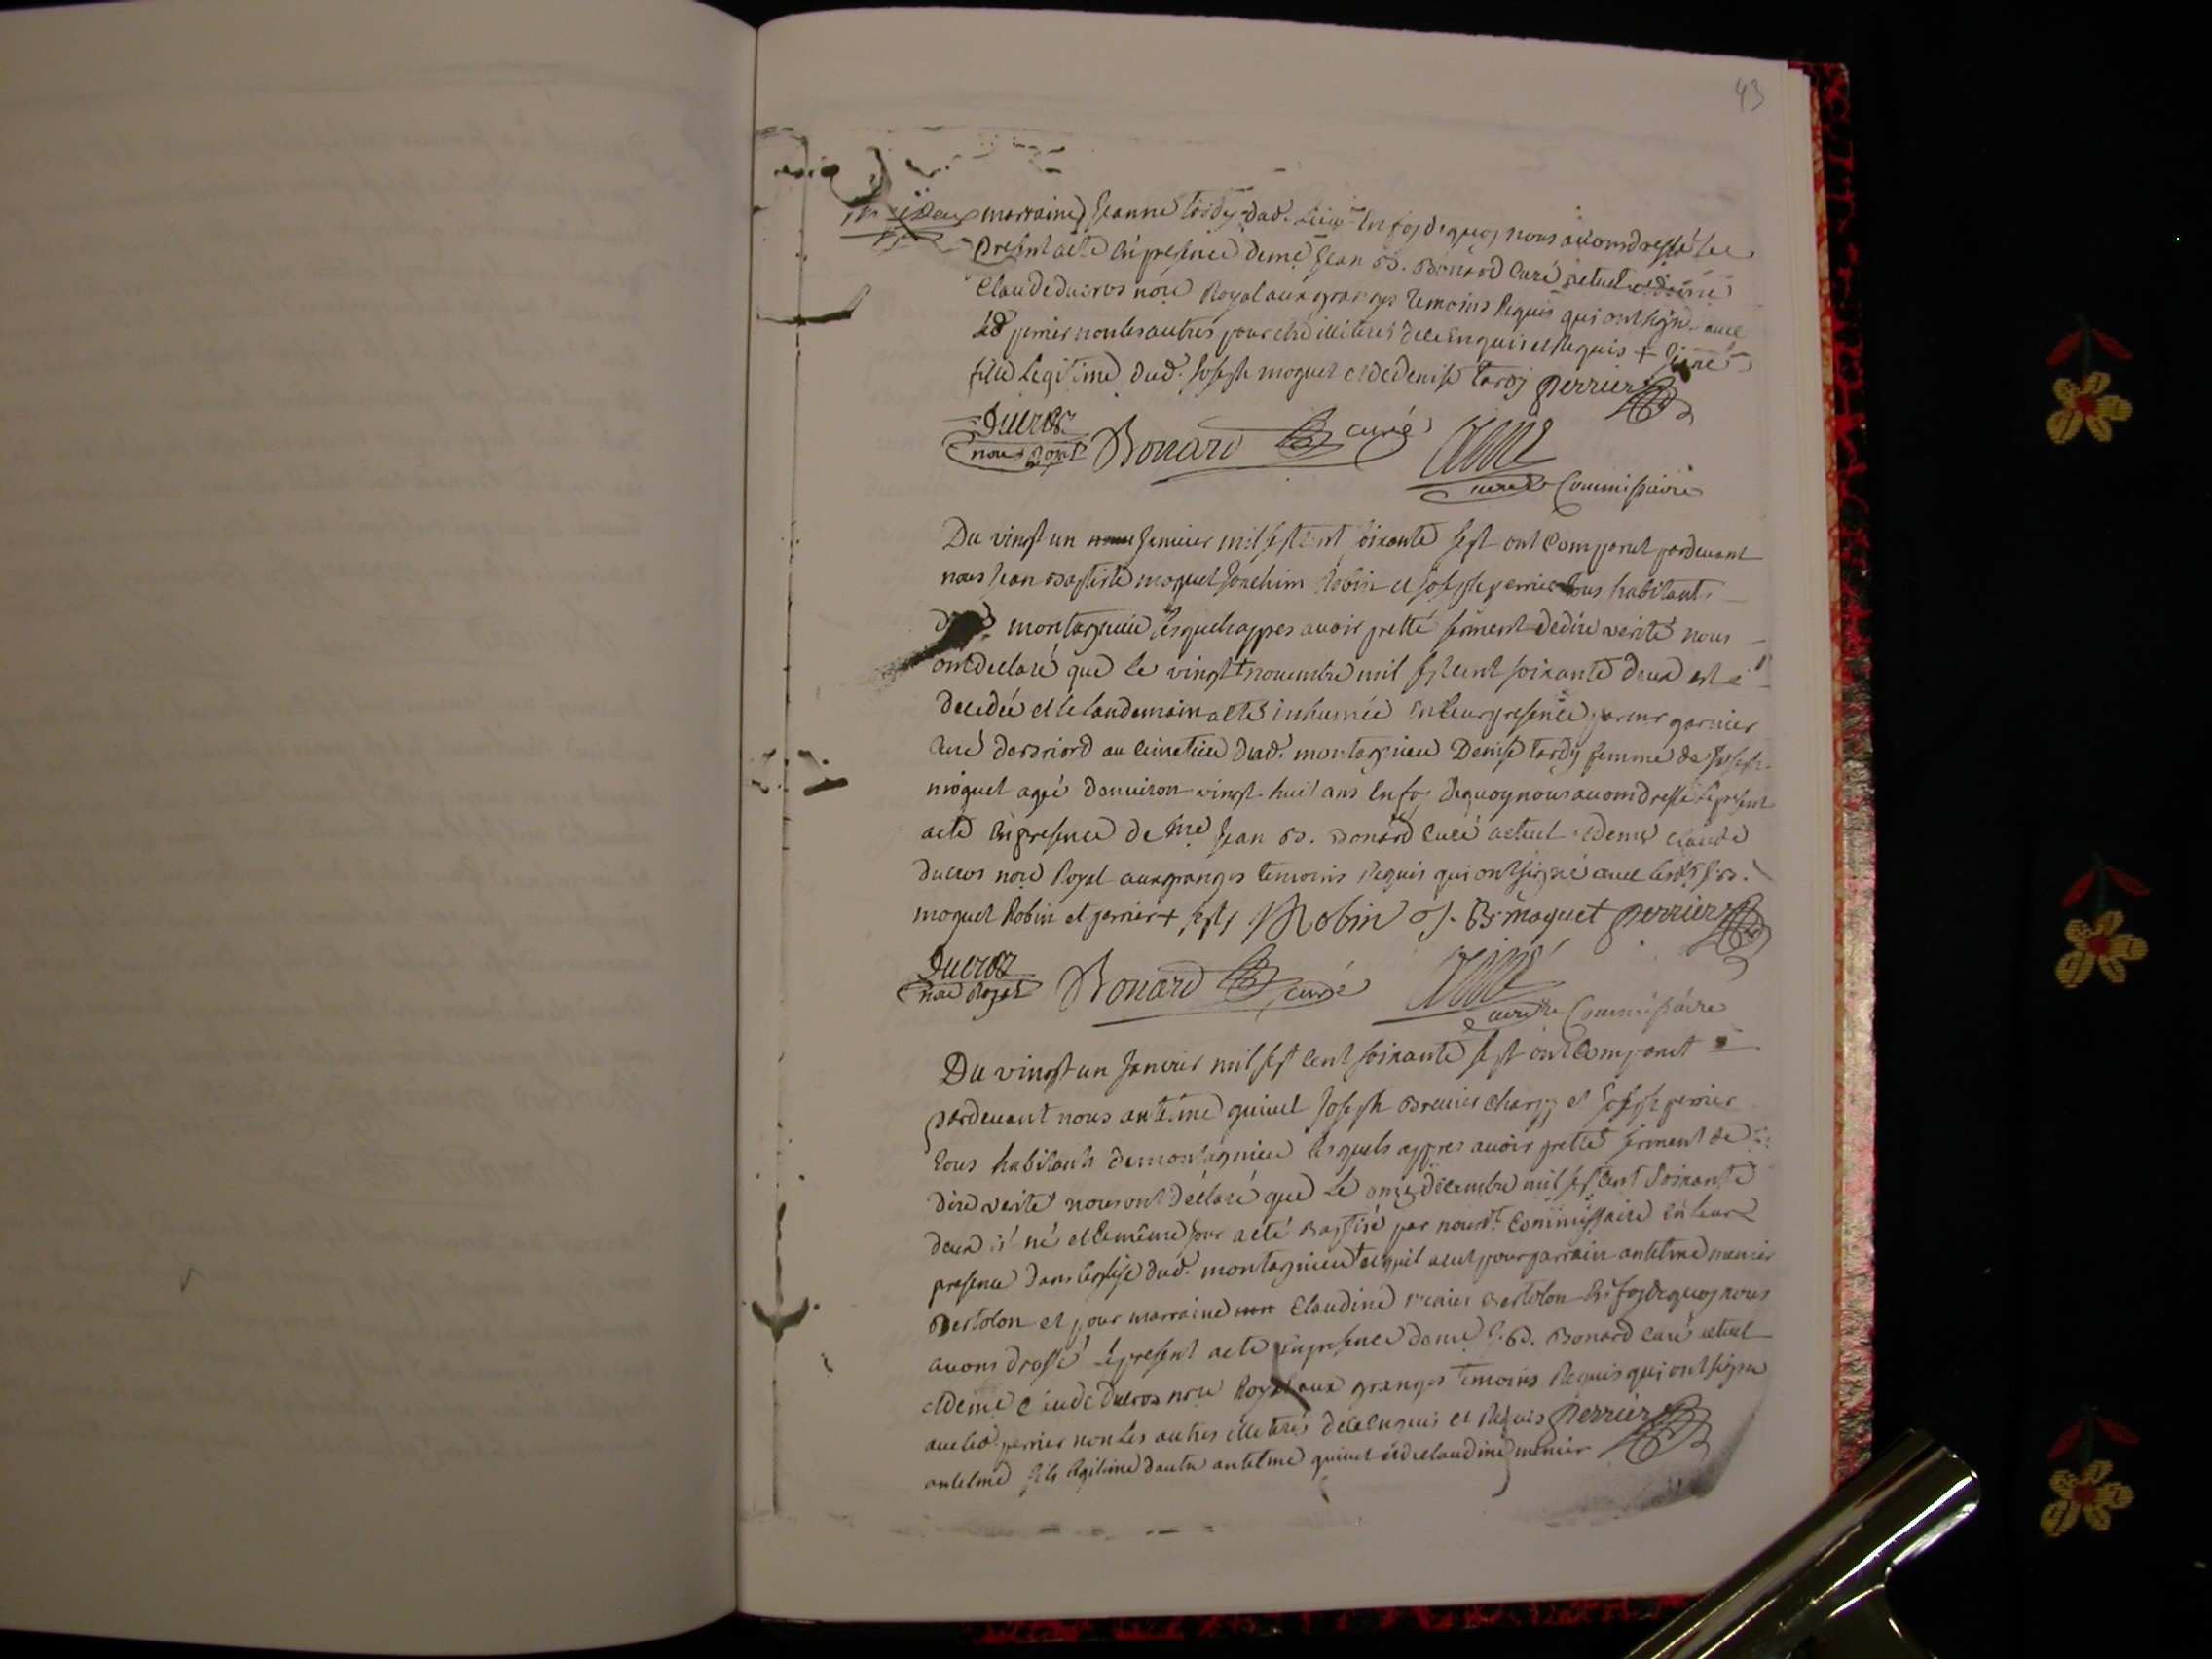 43
marraine Jeanne tardy dud. lieu En foy dequoy nous avons dressé le
present acte En presence de me Jean B. Bonard Curé actuel et de me
Claude ducros nore Royal aux granges temoins Requis qui ont signé avec
led perrier non les autres pour etre illiterés de ce Enquis et Requis + Jeane
fille Legitime dud. Joseph moquet et de denise tardy perrier
Ducros
nore Royal Bonard curé
curé Commissaire
Du vingt un Janvier mil sept cent soixante sept ont Comparut pardevant
nous Jean Baptiste moquet Joachim Robin et Joseph perrier tous habitants
montagnieu lesquels appres avoir pretté serment de dire verité nous
ont declaré que le vingt + novembre mil sept cent soixante deux est
decedée et le landemain a eté inhumée En leur presence par mr garnier
Curé de briord au cimetiere dud. montagnieu Denise tardy femme de Joseph
moquet agée denviron vingt huit ans En foy dequoy nous avons dressé le present
acte En presence de me Jean B. Bonard Curé actuel et de me Claude
ducros nore Royal aux granges temoins Requis qui ont signé avec lesd. J. B.
moquet Robin et perrier + sept Robin J. B. moquet perrier
Ducros
nore Royal Bonard curé
curé Commissaire
Du vingt un Janvier mil sept cent soixante sept ont Comparut
pardevant nous antelme quinet Joseph Brenier chargy et Joseph perrier
tous habitants de montagnieu lesquels appres avoir pretté serment de
dire verité nous ont declaré que Le onze decembre mil sept cent soixante
deux é né et le même jour a eté Baptisé par nous Commissaire En leur
presence dans leglise dud. montagnieu + et quil a eut pour parrain antelme menier
Bertolon et pour marraine Claudine menier Bertolon En foy dequoy nous
avons dressé le present acte En presence de me J. B. Bonard Curé actuel
et de me Claude ducros nore Royal aux granges temoins Requis qui ont signé
avec led. perrier non les autres illiterés de ce Enquis et Requis perrier
antelme fils legitime dautre antelme quinet et de claudine menier